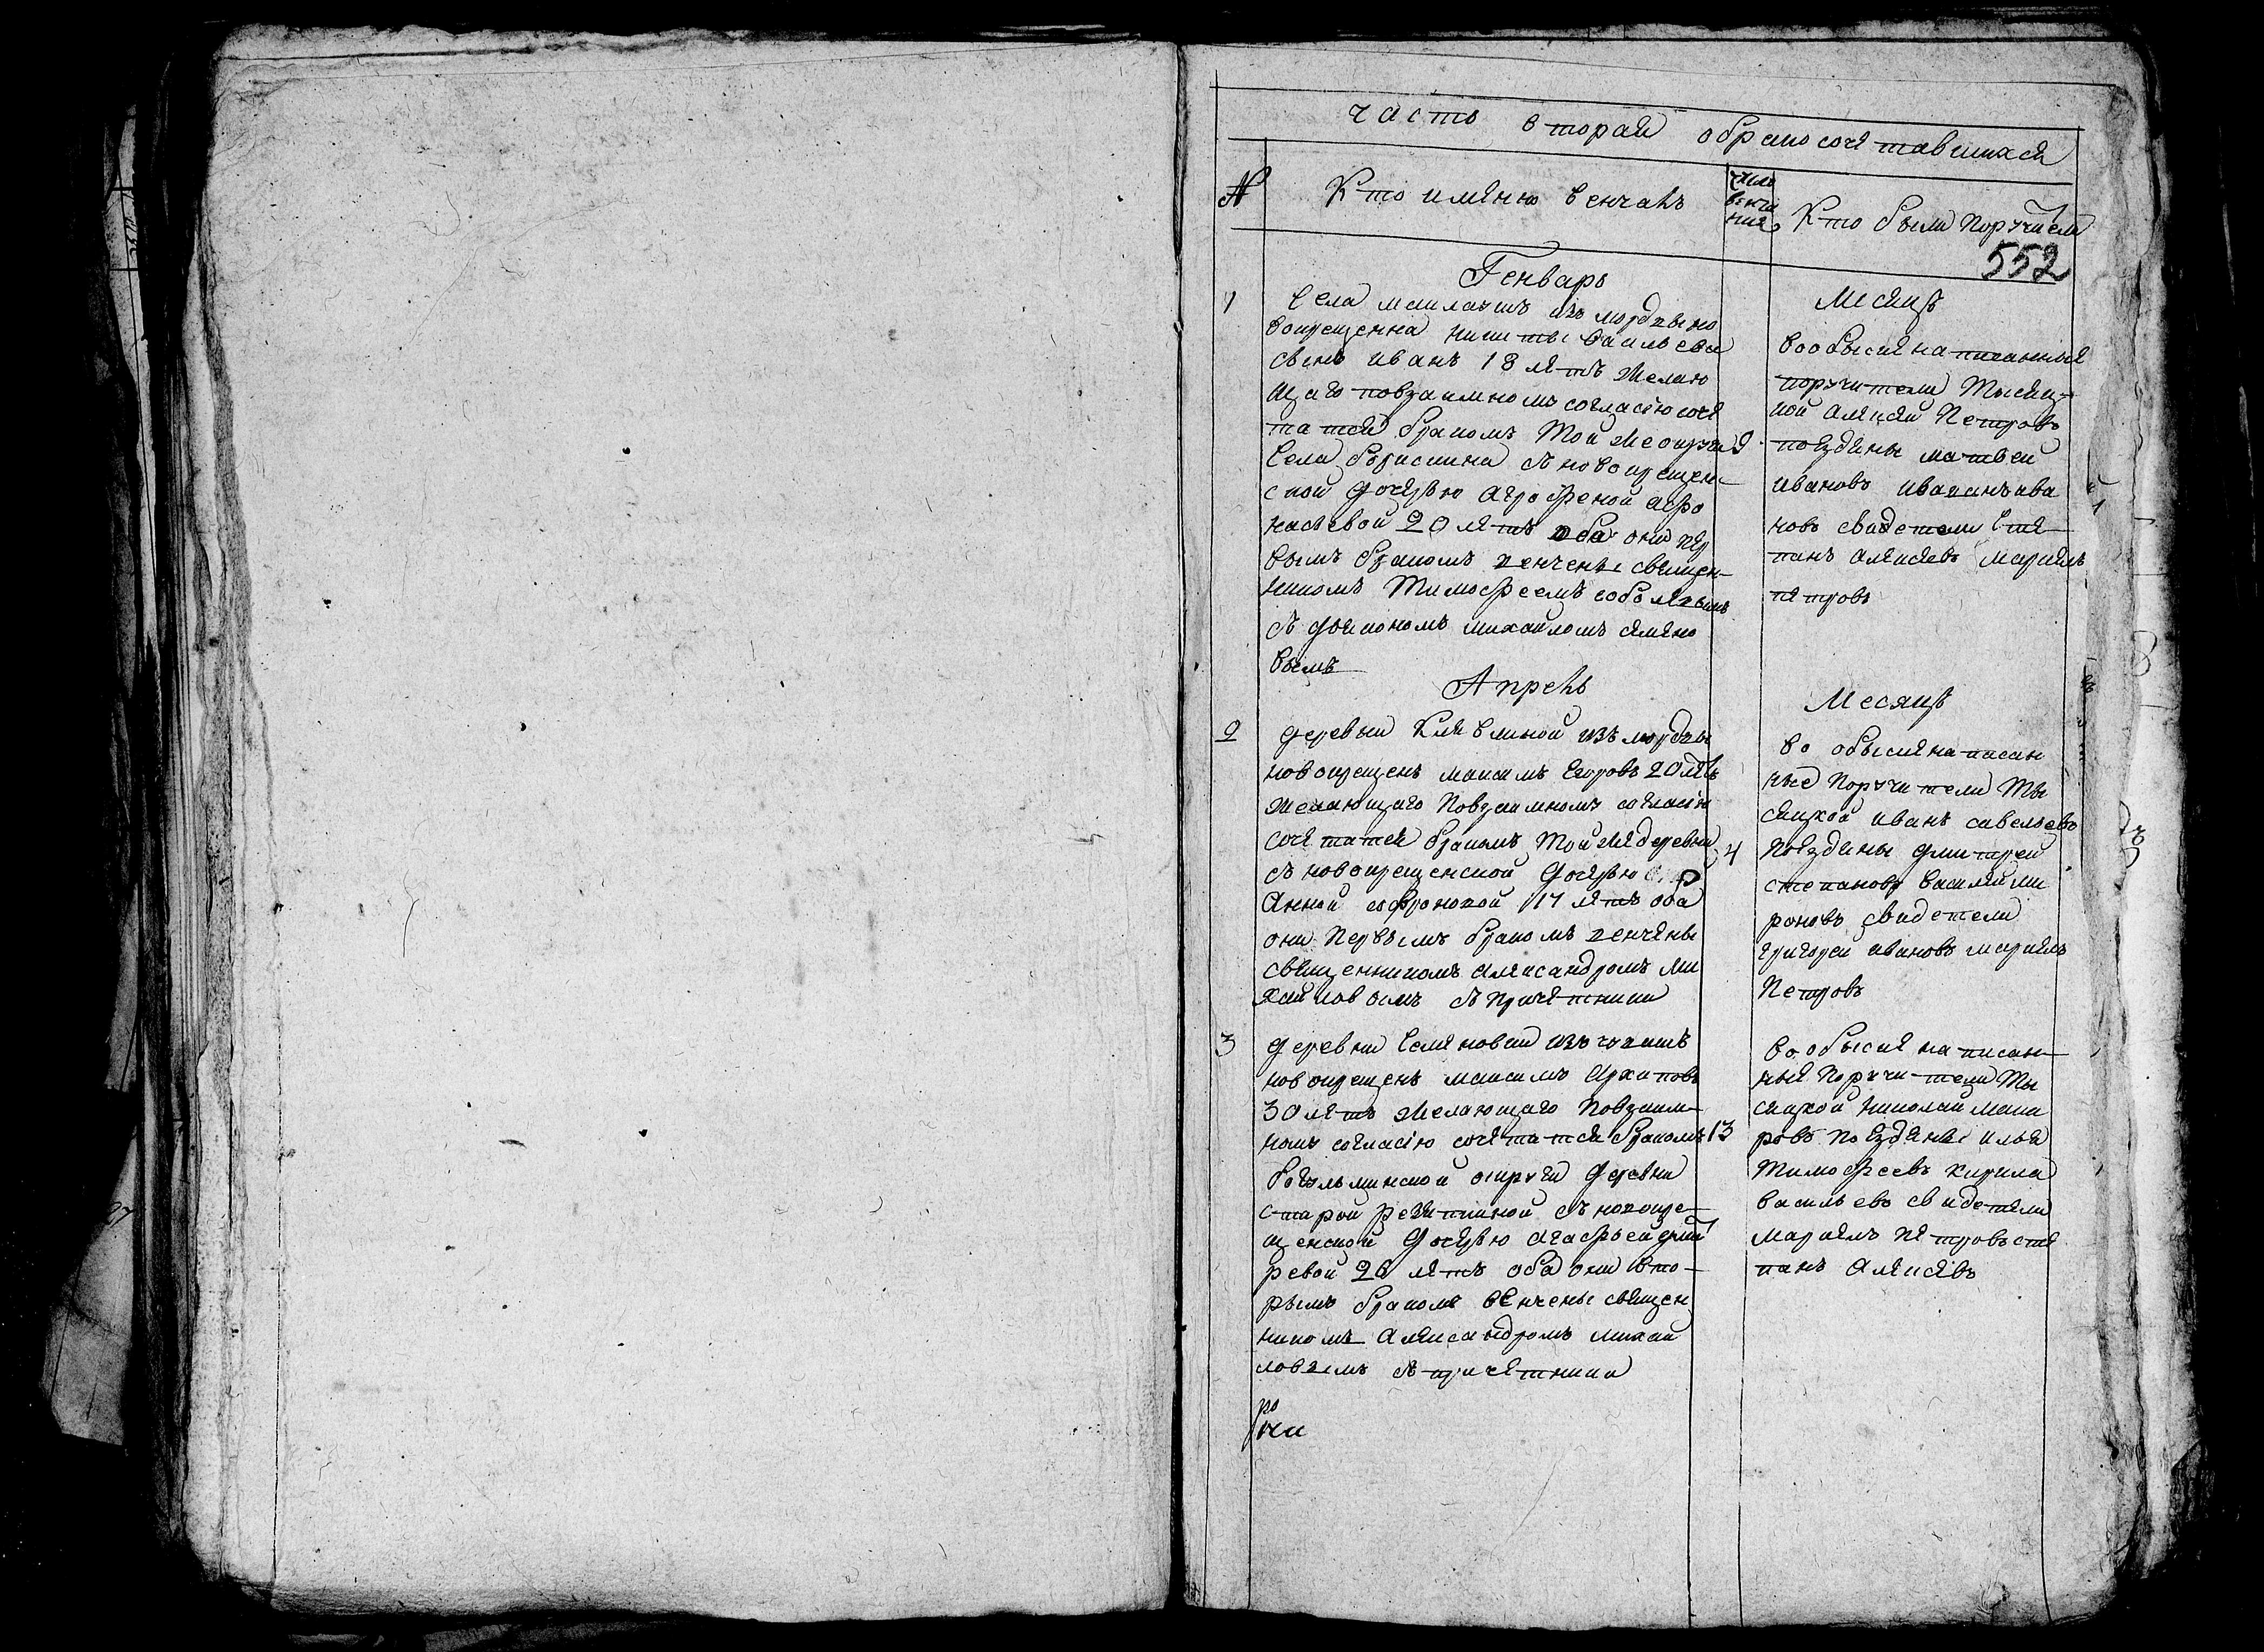 часть вторая обракосочетавшихся
№
Кто имянно венчанъ
число
венча
ния
Кто были поручители
552
Генварь
Месяцъ
1
Села изъ мордвы но
вокрещенна никиты васильева
сынъ иванъ 18 летъ желаю
щаго повзаимному согласию соче
татся бракомъ той же округи
9
села борискина сновокрещен
ской дочерью агрофеной афо
насьевой 20 летъ оба они пер
вымъ бракомъ венчены священ
никомъ Тимофеемъ соболевымъ
съ дьякономъ михаиломъ семено
вымъ
вообыске написанныя
поручители Тысяц
кой алексей Петровъ
поездяны матвей
ивановъ ива
новъ свидетели сте
панъ алексевъ
петровъ
Апрель
Месяцъ
2
деревни Клявлиной изъ мордвы
новокрещенъ максимъ Егоровъ 20 летъ
желающаго повзаимному согласию
сочетатся бракомъ той же деревни
4
съ новокрещенской дочерью
Анной софроновой 17 летъ оба
они первымъ бракомъ венчены
священникомъ александромъ ми
хайловымъ съ причетники
во обыске написан
ные поручители Ты
сяцкой иванъ савельевъ
поездяны дмитрей
степановъ василей ми
роновъ свидетели
григорей ивановъ
Петровъ
3
деревни Семеновки изъ чувашъ
новокрещенъ максимъ Архиповъ
30 летъ желающаго повзаим
ному согласию сочетатся бракомъ
13
бугульминской округи деревни
старой резяпкиной съ новокре
щенской дочерью агафьей дмит
ревой 26 летъ оба они вто
рымъ бракомъ венчены священ
никомъ александромъ михай
ловымъ съ причетники
вообыске написан
ныя поручители Ты
сяцкой николай мака
ровъ поездяны илья
Тимофеевъ кирила
васильевъ свидетели
петровъ сте
панъ алексевъ